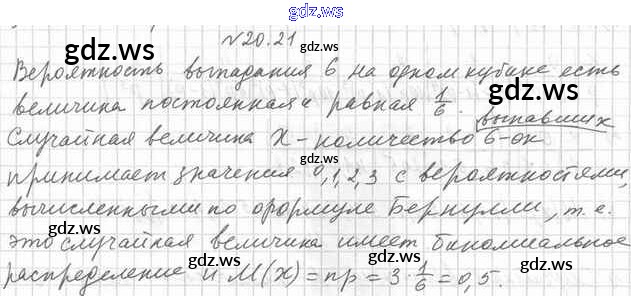 gdz.ws
№20.21
gdz.ws gdz.ws
Вероятность выпадания 6 на одном кубике есть
величина постоянная и равная 1/6. gdz.ws
выпавших
Случайная величина X – количество 6-ок
gdz.ws
принимает значения 0,1,2,3 с вероятностями,
вычисленными по формуле Бернулли, т.е.
gdz.ws gdz.ws
это случайная величина имеет биномиальное
распределение и M(x) = np = 3·1/6 = 0,5.
gdz.ws